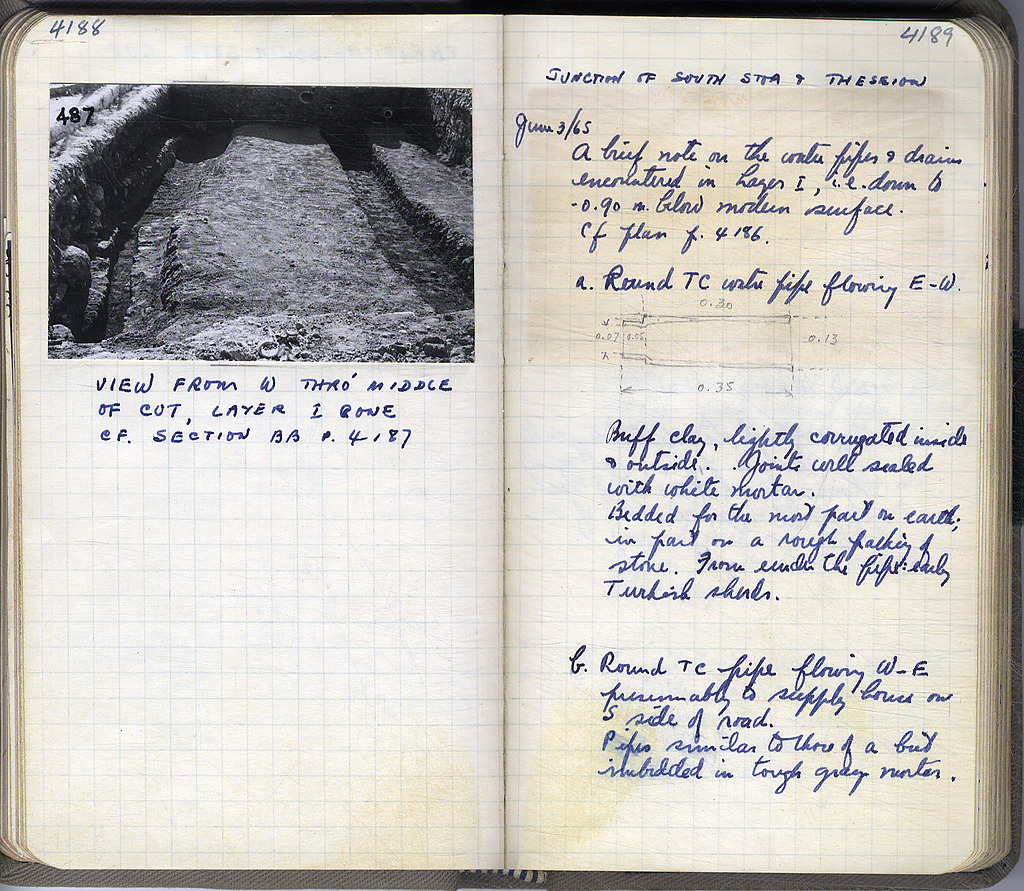 4188
487
VIEW FROM W THRO' MIDDLE
OF CUT, LAYER I GONE
CF. SECTION BB P. 4187
4189
JUNCTION OF SOUTH STOA & THESEION
June 3/65
A brief note on the water pipes & drains
encountered in Layer I, i.e. down to
-0.90 m. below modern surface.
Cf plan p. 4186.
a. Round TC water pipe flowing E-W.
0.30
0.07
0.05
0.13
0.35
Buff clay, lightly corrugated inside
& outside. Joints well sealed
with white mortar.
Bedded for the most part on earth;
in part on a rough packing of
stone. From under the pipe: early
Turkish sherds.
b. Round TC pipe flowing W-E
presumably to supply house on
S side of road.
Pipes similar to those of a but
imbedded in tough gray mortar.